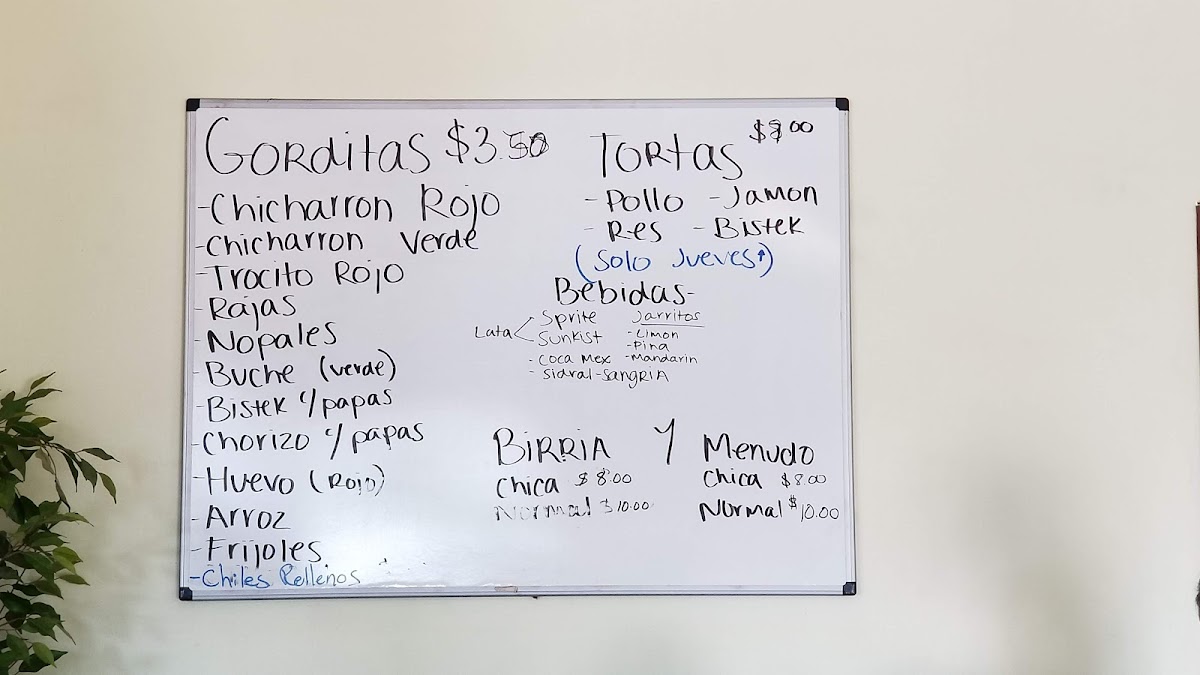 Gorditas $3.50
-Chicharron Rojo
-Chicharron Verde
-Trocito Rojo
-Rajas
-Nopales
-Buche (verde)
-Bistek c/papas
-Chorizo c/papas
-Huevo (Rojo)
-Arroz
-Frijoles
-Chiles Rellenos
Tortas $8.00
-Pollo -Jamon
-Res -Bistek
(Solo Jueves↑)
Bebidas-
Lata < Sprite
Sunkist
-Coca Mex
-Sidral-Sangria
Jarritos
-Limon
-Pina
-Mandarin
Birria Y Menudo
Chica $8.00
Normal $10.00
Chica $8.00
Normal $10.00